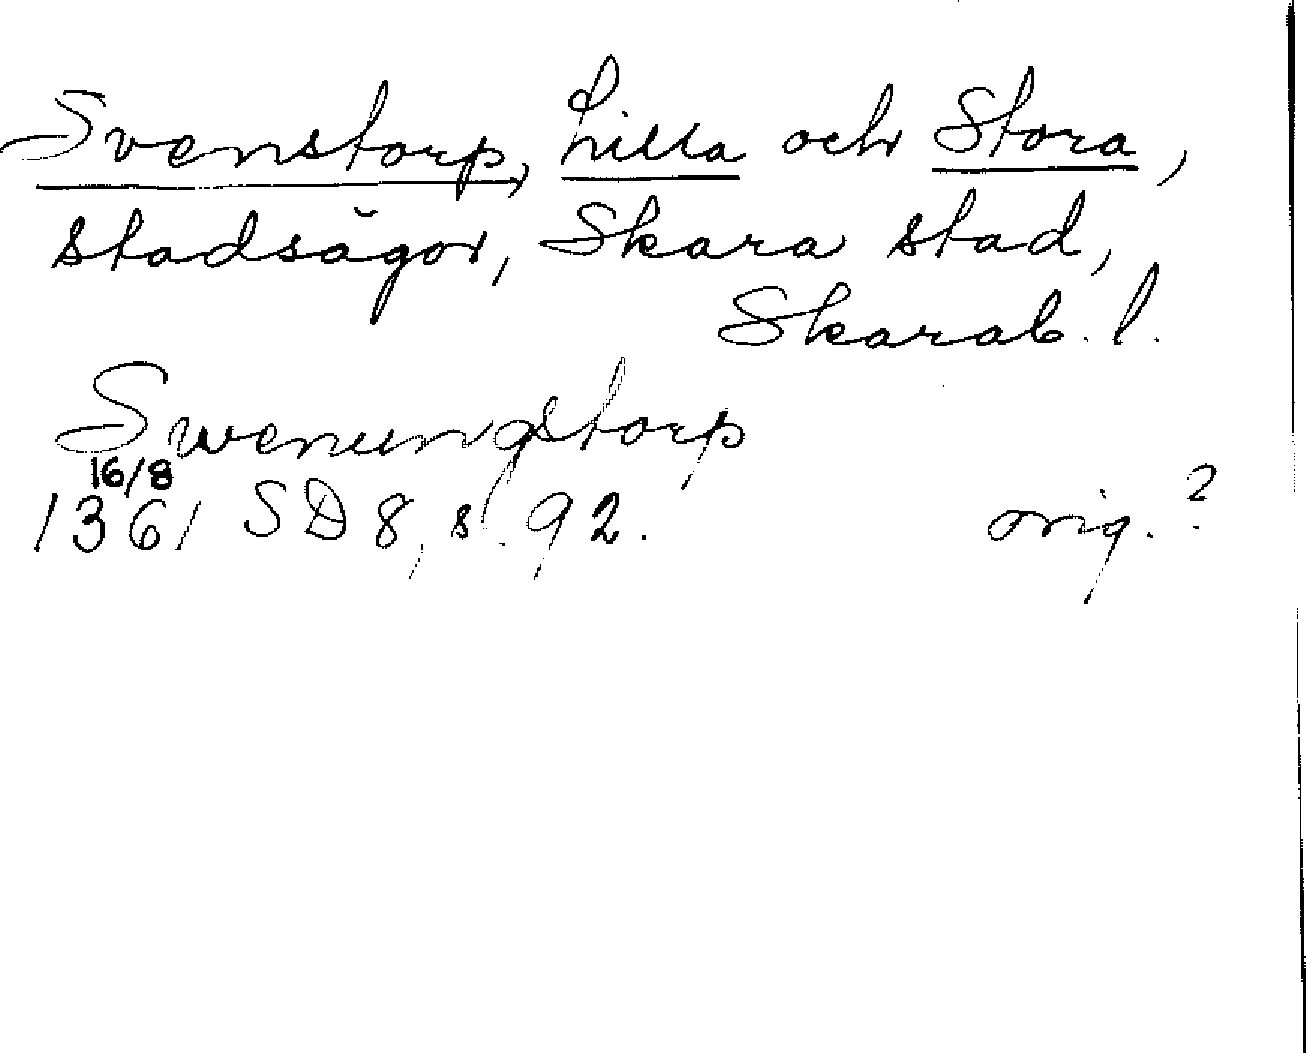 Svenstorp, Lilla och Stora,
stadsägor, Skara stad,
Skarab. l.
Swenungstorp
16/8
1361 SD 8, s. 92. orig. ?